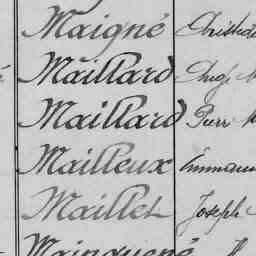 Maigné
Maillard
Maillard Pierr
Mailleux Emmanu
Maillet Joseph
Mainguené